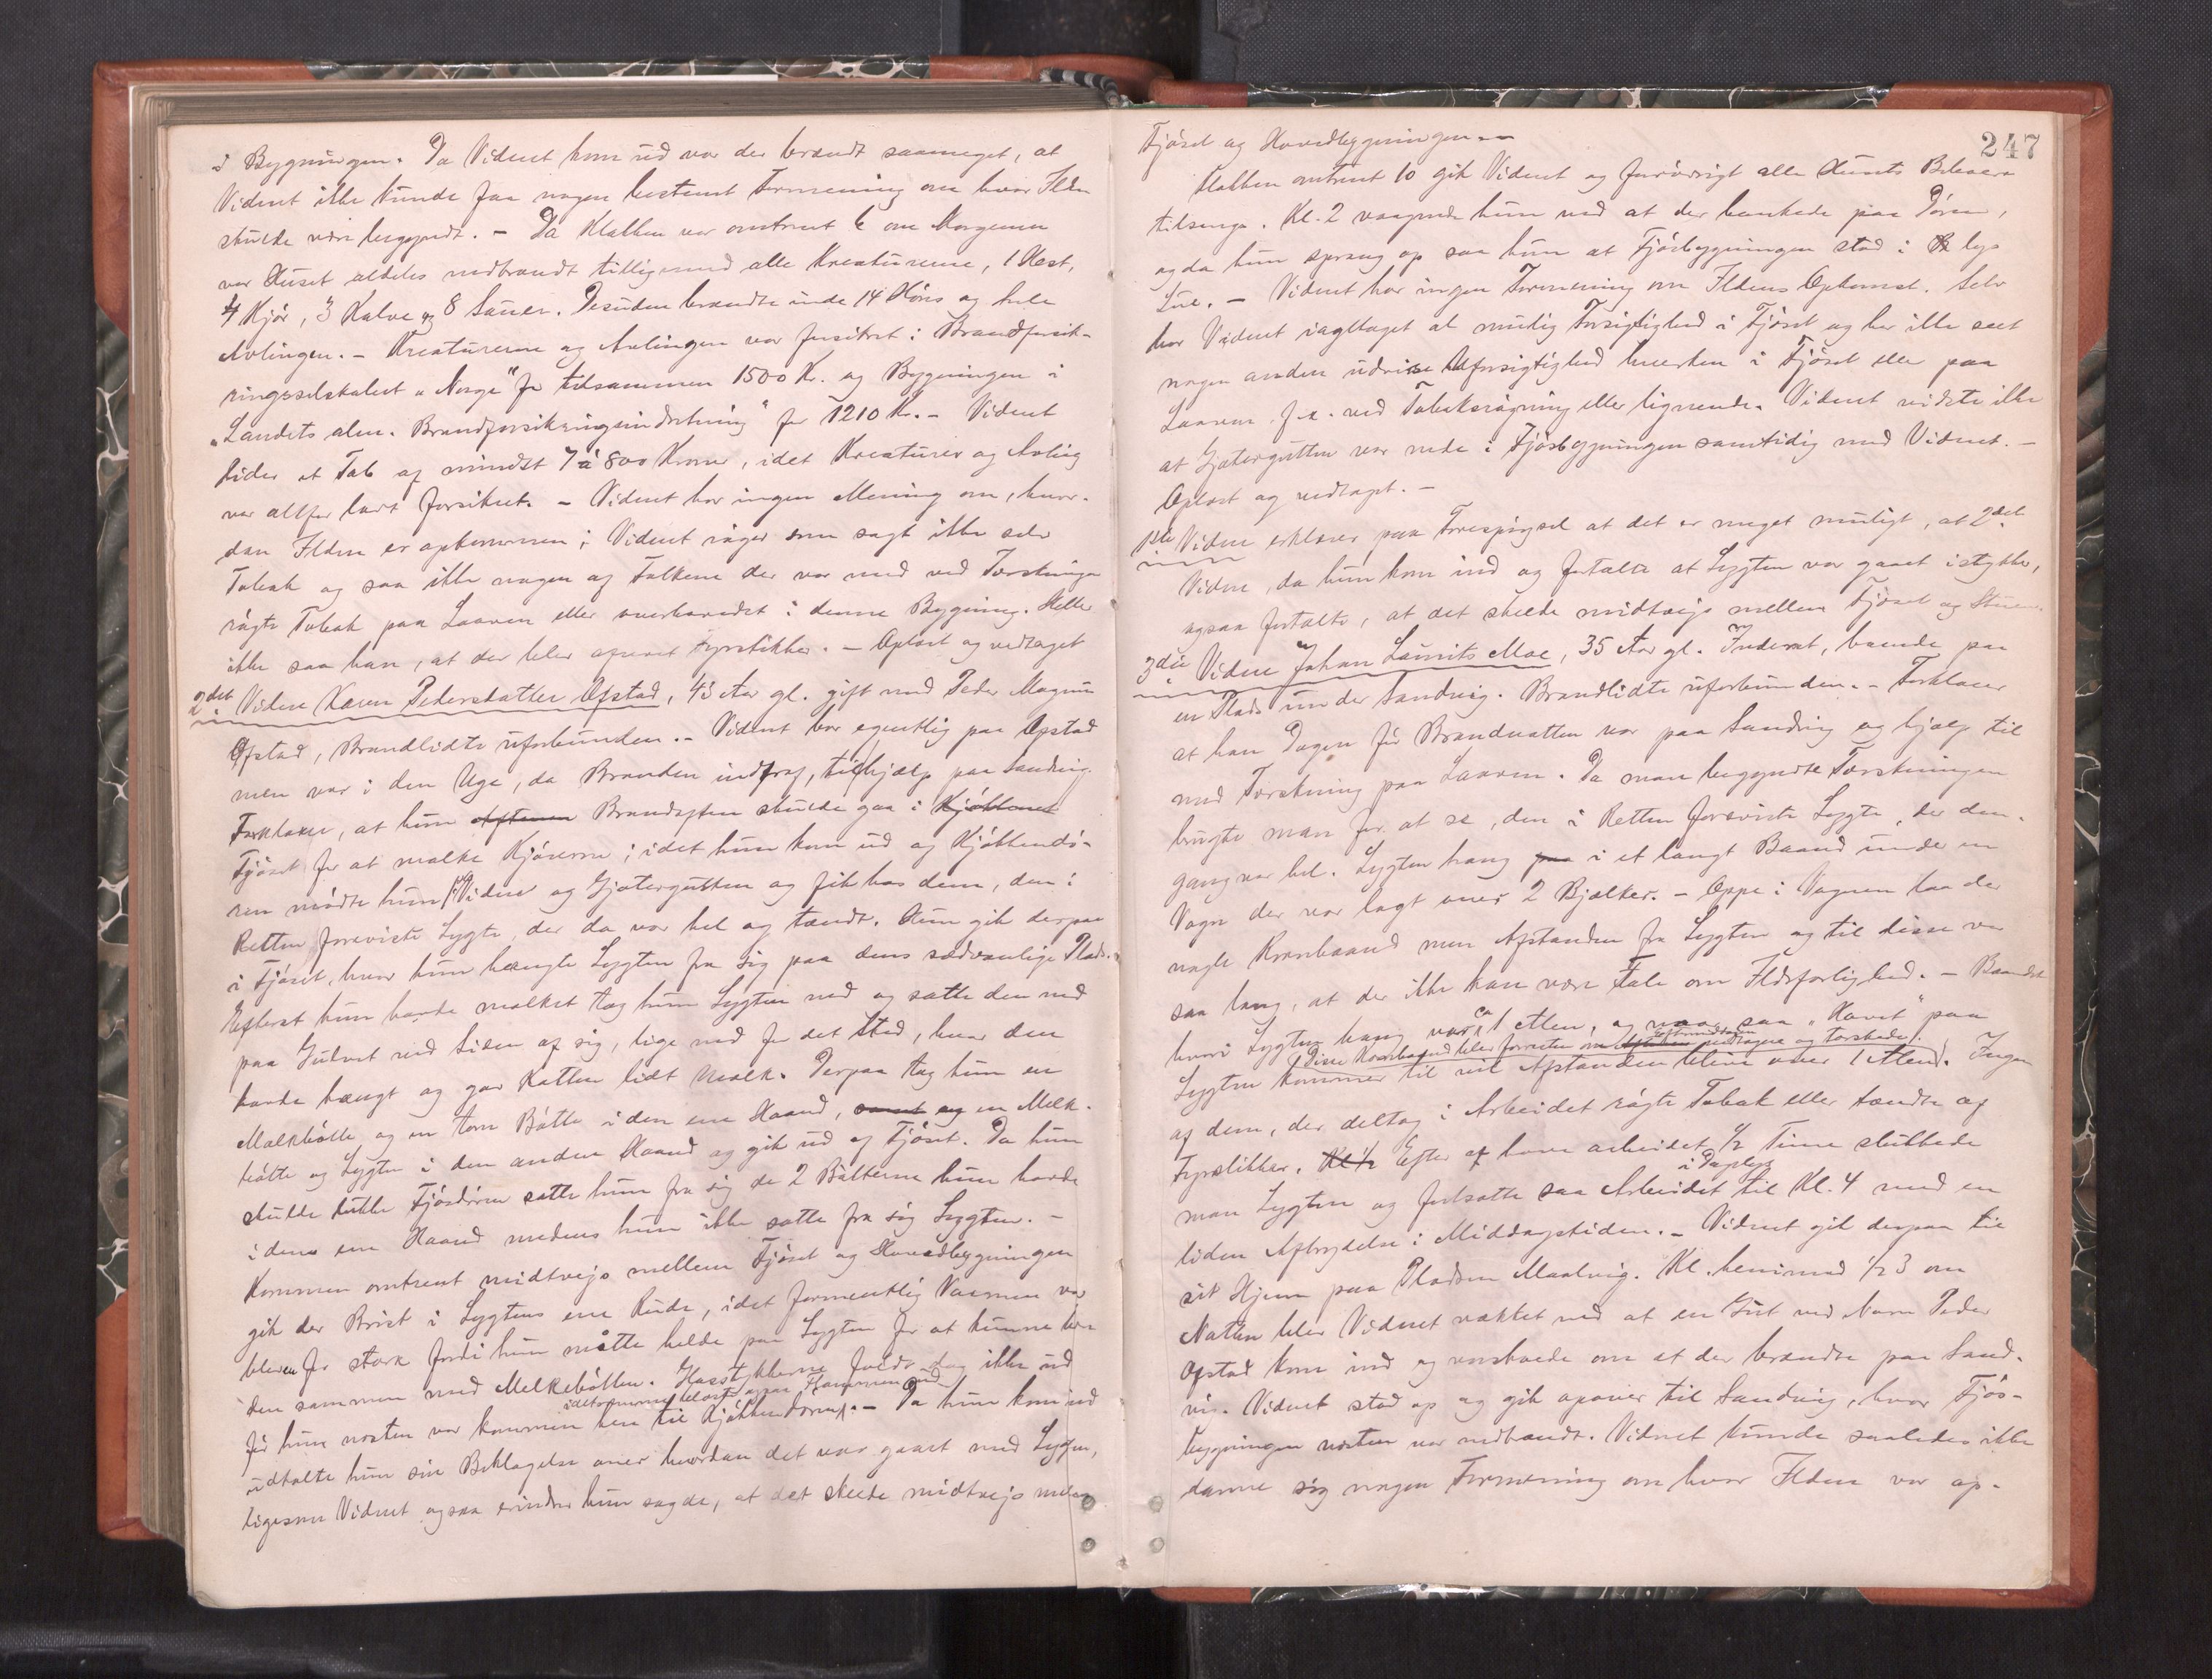 i Bygningen. Da Vidnet kom ud var der brændt saameget, at
Vidnet ikke kunde faa nogen bestemt Formening om hvor Ilden
skulde være begyndt. - Da Klokken var omtrent 6 om Morgenen
var Huset aldeles nedbrændt tilligemed alle Kreaturerne, 1 Hest,
4 Kjør, 3 Kalve og 8 Sauer. Desuden brændte inde 14 Høns og hele
Avlingen. - Kreaturerne og Avlingen var forsikret i Brandforsik-
ringsselskabet "Norge" for tilsammen 1500 Kr. og Bygningen i
"Landets alm. Brandforsikringsindretning" for 1210 Kr. - Vidnet
lider et Tab af mindst 7 à 800 Kroner, idet Kreaturer og Avling
var altfor lavt forsikret. - Vidnet har ingen Mening om, hvor-
dan Ilden er opkommen; Vidnet røger som sagt ikke selv
Tobak og saa ikke nogen af Folkene der var med ved Tærskninge
røgte Tobak paa Laaven eller overhovedet i denne Bygning. Heller
ikke saa han, at der blev afrevet Fyrstikker. - Oplæst og vedtaget
2det Vidne Karen Pedersdatter Opstad, 43 Aar gl. gift med Peder Magnus
Opstad, Brandlidte uforbunden. - Vidnet bor egentlig paa Opstad
men var i den Uge, da Branden indtraf, tilhjælp paa Sandvig.
Forklarer, at hun Aftenen Brandaften skulde gaa i Kjøkkenet
Fjøset for at malke Kjøerne; idet hun kom ud af Kjøkkendø-
ren mødte hun 1ste Vidne og Gjætergutten og fik hos dem, den i
Retten foreviste Lygte, der da var hel og tændt. Hun gik derpaa
i Fjøset, hvor hun hængte Lygten fra sig paa dens sædvanlige Plads.
Efterat hun havde malket tog hun Lygten ned og satte den ned
paa Gulvet ved Siden af sig, lige ned for det Sted, hvor den
havde hængt og gav Katten lidt Melk. Derpaa tog hun en
Malkbøtte og en tom Bøtte i den ene Haand, samt og en Melk-
bøtte og Lygten i den anden Haand og gik ud af Fjøset. Da hun
skulde lukke Fjøsdøren satte hun fra sig de 2 Bøtterne hun havde
i den ene Haand medens hun ikke satte fra sig Lygten. -
Kommen omtrent midtvejs mellem Fjøset og Hovedbygningen
gik der Brist i Lygtens ene Rude, idet formentlig Varmen var
bleven for stærk fordi hun måtte helde paa Lygten for at kunne bære
den sammen med Melkebøtten. Glasstykkerne faldt dog ikke ud
før hun næsten var kommen hen til Kjøkkendøren. - Da hun kom ind
udtalte hun sin Beklagelse over hvordan det var gaaet med Lygten,
ligesom Vidnet ogsaa erindrer hun sagde, at det skede midtvejs mellem
247
Fjøset og Hovedbygningen. -
Klokken omtrent 10 gik Vidnet og forøvrigt alle Husets Beboere
tilsengs. Kl. 2 vaagnede hun ved at der bankede paa Døren,
og da hun sprang op saa hun at Fjøsbygningen stod i lys
Lue. - Vidnet har ingen Formening om Ildens Opkomst. Selv
har Vidnet iagttaget al mulig Forsigtighed i Fjøset og har ikke seet
nogen anden udvise Uforsigtighed hverken i Fjøset eller paa
Laaven f. x. ved Tobaksrøgning eller lignende. Vidnet vidste ikke
at Gjætergutten var nede i Fjøsbygningen samtidig med Vidnet. -
Oplæst og vedtaget. -
1ste Vidne erklærer paa Forespørgsel at det er meget muligt, at 2det
Vidne, da hun kom ind og fortalte at Lygten var gaaet istykker,
ogsaa fortalte, at det skede midtveis mellem Fjøset og Stuen.
3die Vidne Johan Laurits Moe, 35 Aar gl. Inderst, boende paa
en Plads under Sandvig. Brandlidte uforbunden. - Forklarer
at han Dagen før Brandnatten var paa Sandvig og hjalp til
med Tærskning paa Laaven. Da man begyndte Tærskningen
brugte man for at se, den i Retten foreviste Lygte, der den-
gang var hel. Lygten hang paa i et langt Baand under en
Vogn der var lagt over 2 Bjælker. - Oppe i Vognen laa der
nogle Kornbaand men Afstanden fra Lygten og til disse var
saa lang, at der ikke kan være Tale om Ildsfarlighed. - Baandet
hvori Lygten hang var ca 1 Alen, og naar saa "Havet" paa
Disse Kornbaand blev forresten om Aftenen Eftermiddagen nedtagne og tærskede.
Lygten kommer til vil Afstanden blive over 1 Alen. Ingen
af dem, der deltog i Arbeidet røgte Tobak eller tændte af
Fyrstikker. Kl ½ Efter at have arbeidet ½ Time slukkede
man Lygten og fortsatte saa Arbeidet i Dagslys til Kl. 4 med en
liden Afbrydelse i Middagstiden. - Vidnet gik derpaa til
sit Hjem paa Pladsen Maalvig. Kl. henimod ½3 om
Natten blev Vidnet vækket ved at en Gut ved Navn Peder
Opstad kom ind og varskoede om at der brændte paa Sand-
vig. Vidnet stod op og gik opover til Sandvig, hvor Fjøs-
bygningen næsten var nedbrændt. Vidnet kunde saaledes ikke
danne sig nogen Formening om hvor Ilden var op-